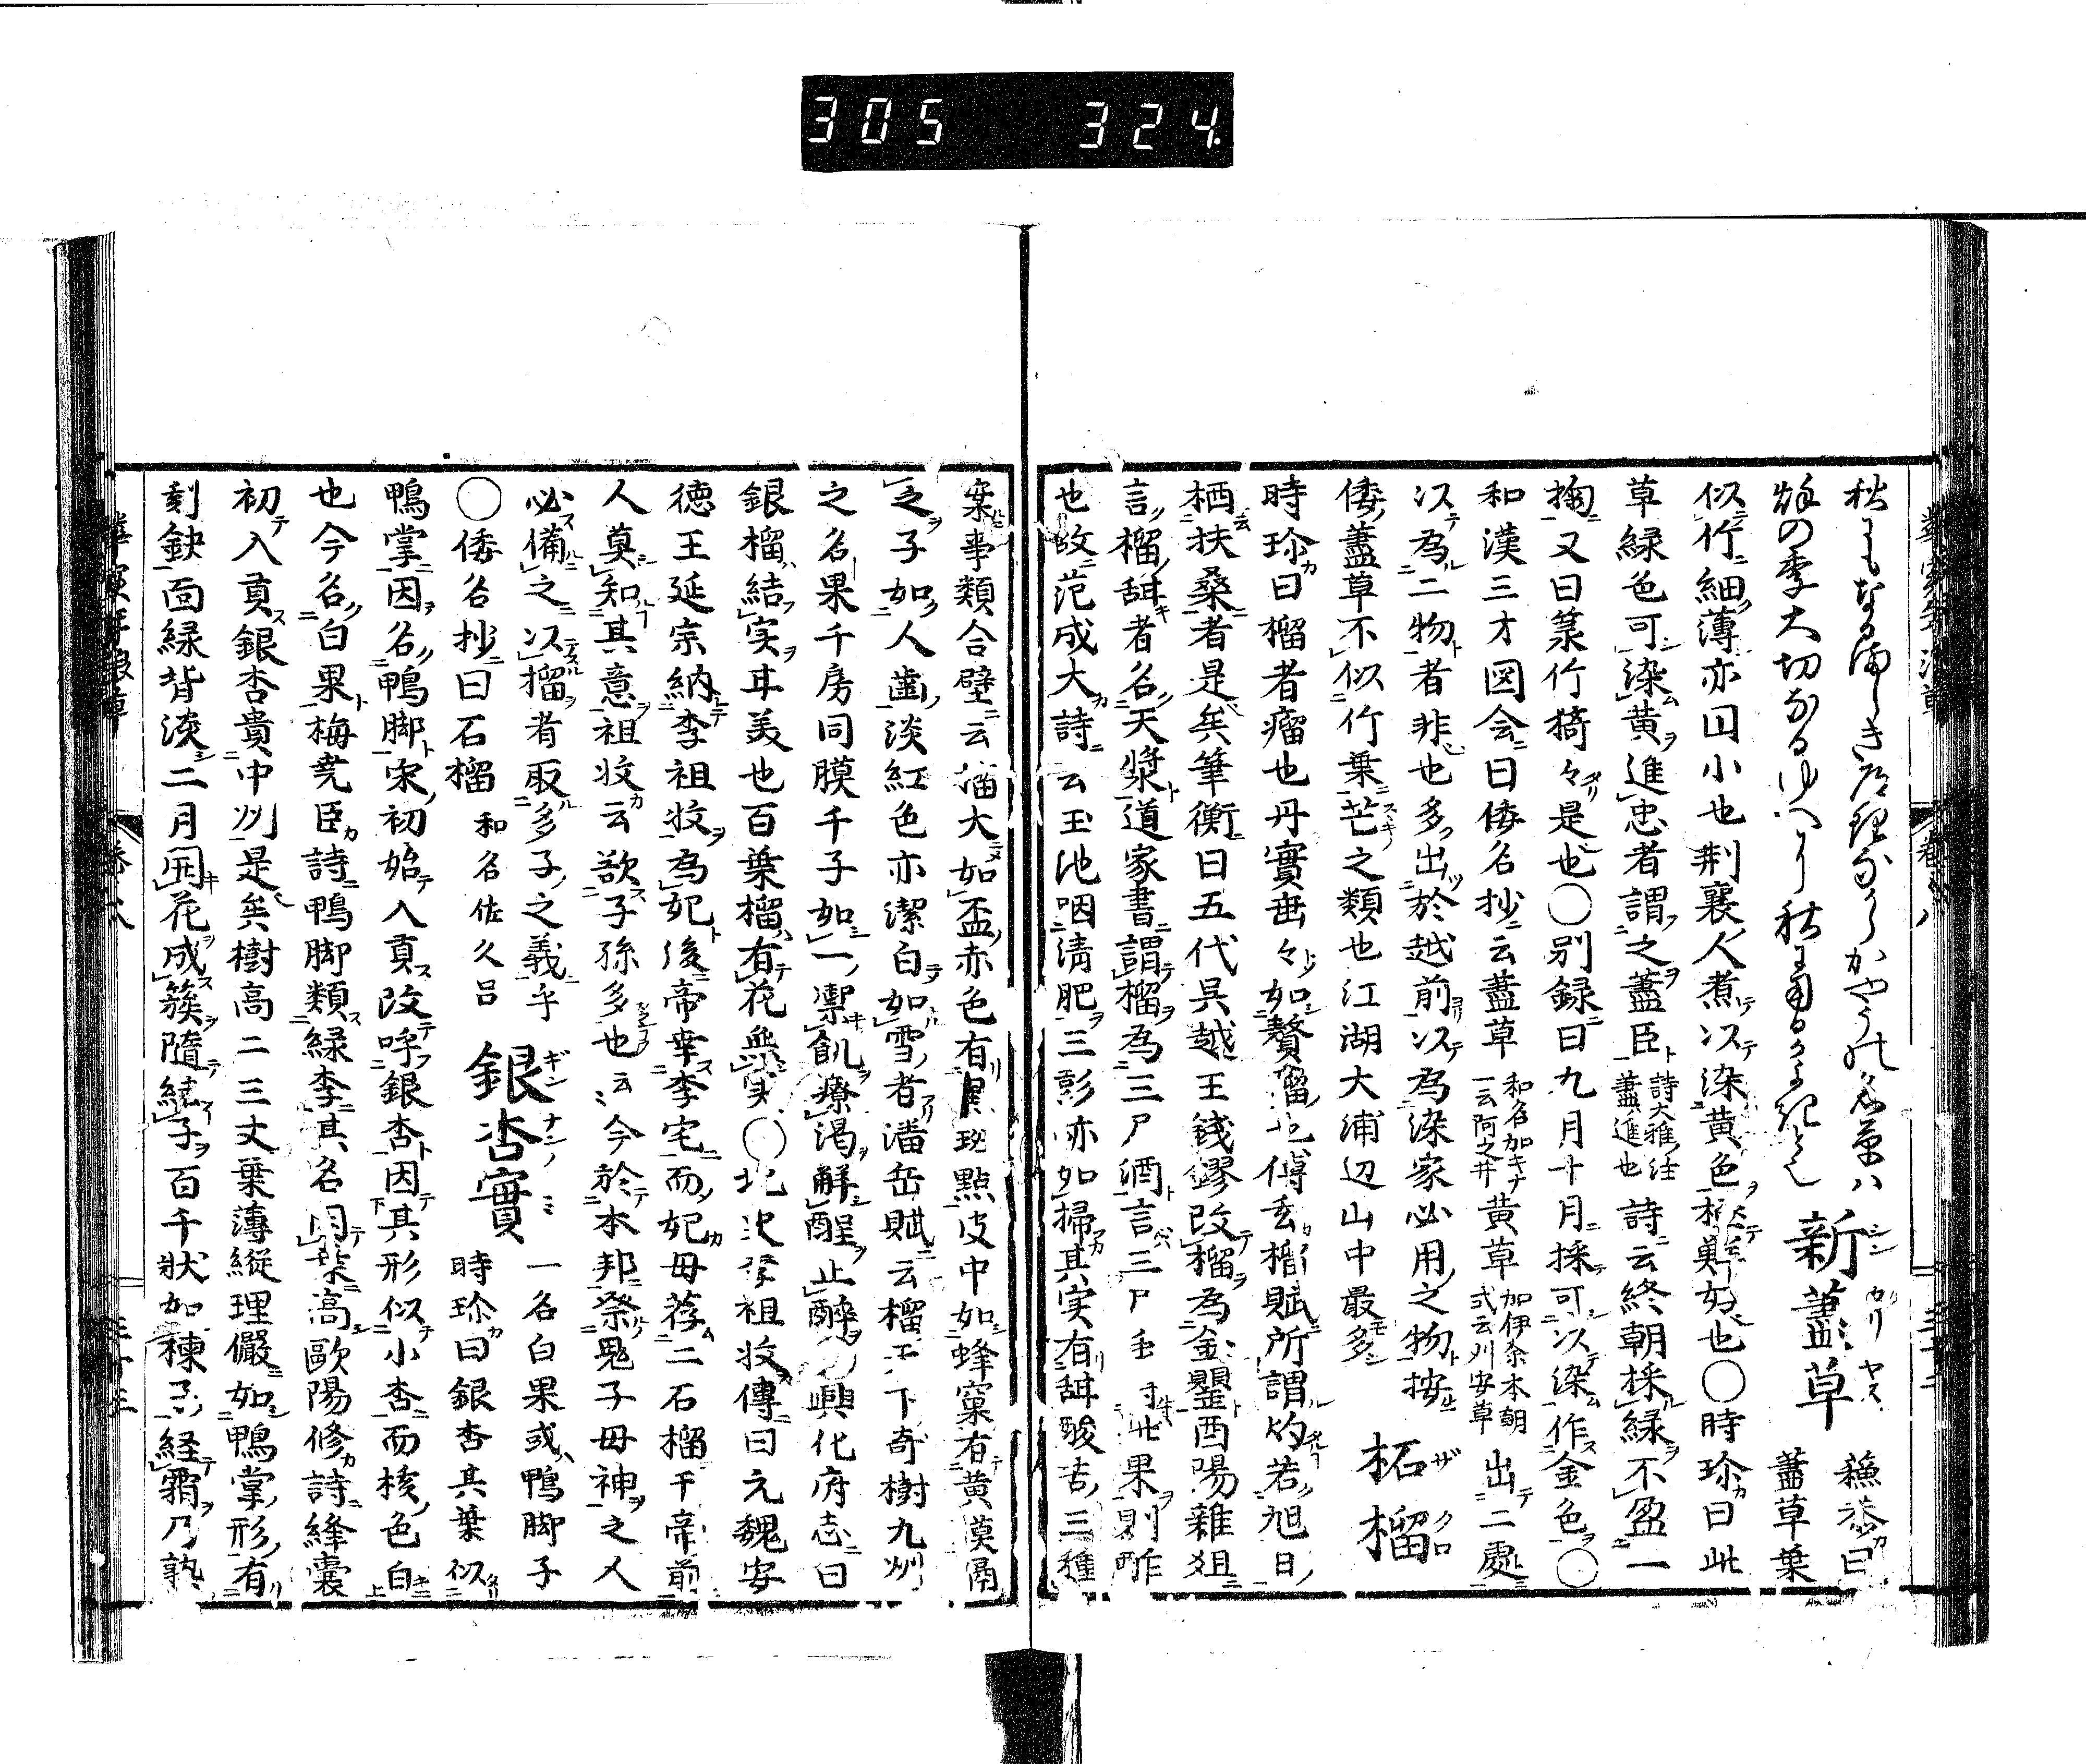 305 324
秋にもなるましき
の季大切なるゆへに秋
新藎草 シン カリヤス 蘓恭曰 藎草葉
似竹細薄亦図小也荆襄人煮以染黄色極鮮好也〇時珍曰此
草緑色可染黄進忠者謂之藎臣 詩大雅註 藎進也 詩云終朝採緑不盈一
掬又曰菉竹猗々是也〇別録曰九月十月採可以染作金色〇
和漢三才図会曰倭名抄云藎草 和名加木ナ 一云阿之井 黄草 加伊奈本朝 式云刈安草 出二處
以為二物者非也多出於越前以テ為染家必用之物按
倭藎草不似竹葉芒之類也江湖大浦辺山中最多 柘榴 ザクロ
時珍曰榴者瘤也丹實垂々如贅瘤也傅玄榴賦所謂灼若旭日
栖扶桑者是矣筆衡曰五代呉越王銭鏐改榴為金罌酉陽雜俎
言榴甜者名天漿道家書謂榴為三尸酒言三尸 此果則酢
也故范成大詩云玉池咽清肥三彭亦如掃其実有甜酸苦三種
案事類合璧云榴大如盃赤色有黒斑點皮中如蜂窠有黄漠鬲
之子如人齒淡紅色亦潔白如雪者潘岳賦云榴天下奇樹九州
之名果千房同膜千子如一禦飢療渇解酲止醉興化府志曰
銀榴結実耳美也百葉榴有花無実〇北史李祖收傳曰元魏安
徳王延宗納李祖收為妃後帝幸李宅而妃母荐二石榴于帝前
人莫知其意祖收云欲子孫多也云々今於本邦祭鬼子母神之人
必備之以榴者取多子之義乎
〇倭名抄曰石榴 和名佐久呂 銀杏實 ギンナンノミ 一名白果或鴨脚子 時珍曰銀杏其葉似
鴨掌因名鴨脚宋初始入貢改呼銀杏因其形似小杏而核色白
也今名白果梅堯臣詩鴨脚類緑李其名因葉高歐陽修詩絳囊
初入貢銀杏貴中州是矣樹高二三丈葉薄縱理儼如鴨掌形有
刻鈌面緑背淡二月開花成簇隨結子百千狀如楝子経霜乃熟